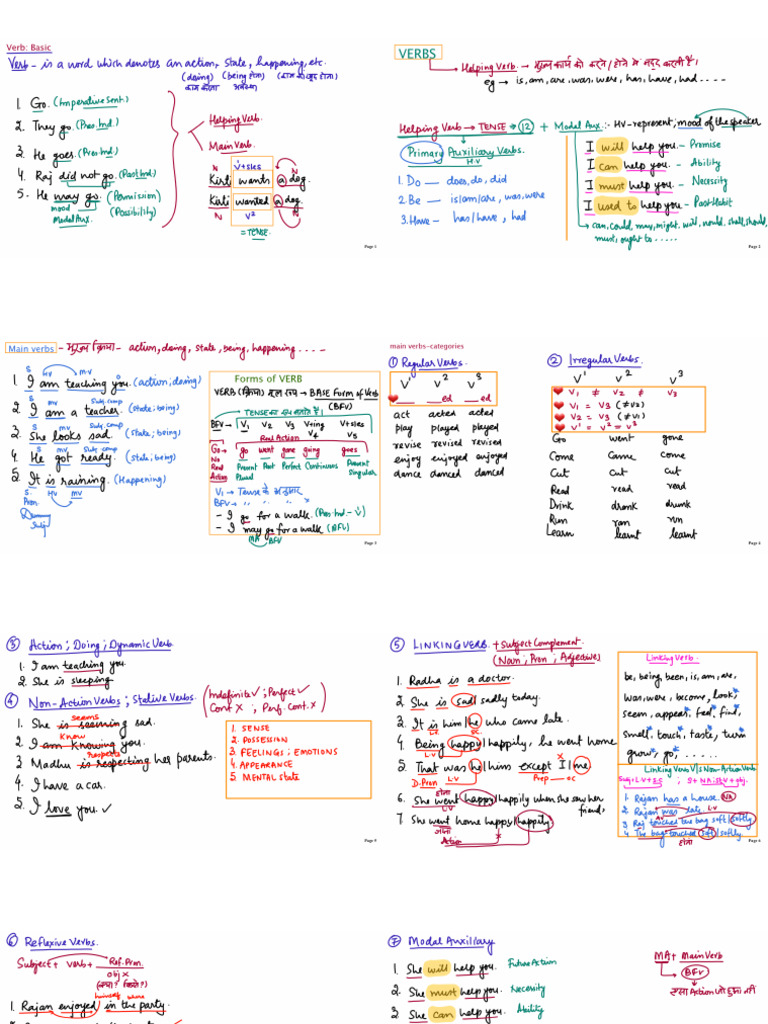 Verb: Basic
Verb - is a word which denotes an action, state, happening, etc.
(doing) (being होना) (काम का खुद होना)
काम करना अवस्था
1. Go. (Imperative Sent.)
2. They go. (Pres. Ind.)
3. He goes. (Pres. Ind.)
4. Raj did not go. (Past Ind)
5. He may go. (Permission)
mood (Possibility)
Modal Aux.
Helping Verb.
Main Verb.
V+s/es
Kirti wants a dog.
Kirti wanted a dog.
N V² N
= TENSE.
Page 1
VERBS
Helping Verb. → मुख्य कार्य को करने/होने में मदद करती हैं।
eg → is, am, are, was, were, has, have, had ....
Helping Verb → TENSE → 12 + Modal Aux.:- HV-represent; mood of the speaker
Primary Auxiliary Verbs.
H.V
1. Do — does, do, did
2. Be — is/am/are, was, were
3. Have - has/have, had
I will help you. - Promise
I can help you. - Ability
I must help you. - Necessity
I used to help you. - Past Habit
→ can, could, may, might, will, would, shall, should,
must, ought to .....
Page 2
Main verbs - मुख्य क्रिया - action, doing, state, being, happening ....
S HV M.V
1. I am teaching you. (action; doing)
S MV Sub. comp
2. I am a teacher. (state; being)
Sub. comp
3. She looks sad. (state; being)
Sub. comp
4. He got ready. (State; being)
5. It is raining. (Happening)
S. HV MV
Pron.
Subj
Forms of VERB
VERB (क्रिया) मूल रूप → BASE Form of Verb
(BFV)
BFV → V₁ V₂ V₃ V+ing V+s/es
Real Action V₄ V₅
Go → go went gone going goes
No Real Action
Present Plural Past Perfect Continuous Present Singular
V₁ → Tense के अनुसार
BFV → " " " x
- I go for a walk. (Pres. Ind - V¹)
- I may go for a walk (BFV)
MA BFV
Page 3
main verbs-categories
① Regular Verbs.
V¹ V² V³
___ ___ed ___ed
act acted acted
play played played
revise revised revised
enjoy enjoyed enjoyed
dance danced danced
② Irregular Verbs.
V¹ V² V³
V₁ ≠ V₂ ≠ V₃
V₁ = V₃ (≠V₂)
V₂ = V₃ (≠V₁)
V¹ = V² = V³
Go went gone
Come came come
Cut cut cut
Read read read
Drink drank drunk
Run ran run
Learn learnt learnt
Page 4
③ Action; Doing; Dynamic Verb
1. I am teaching you.
2. She is sleeping
④ Non-Action Verbs; Stative Verbs.
(Indefinite ✓; Perfect ✓
Cont X ; Perf. Cont. X)
seems
1. She is seeming sad.
Know
2. I am knowing you.
respects
3. Madhu is respecting her parents.
4. I have a car.
5. I love you. ✓
1. SENSE
2. POSSESSION
3. FEELINGS; EMOTIONS
4. APPEARANCE
5. MENTAL state
Page 5
⑤ LINKING VERB. + Subject Complement
(Noun; Pron; Adjective)
1. Radha is a doctor.
2. She is sad/ sadly today.
3. It is him/he who came late.
LV SC
4. Being happy/happily, he went home
L.V
5. That was he/him except I/me
D. Pron. L.V Prep → OC
होना
6. She went happy/happily when she saw her
friend
L.V
7. She went home happy/happily
जाना
Action
Linking Verb.
be, being, been, is, am, are,
was, were, become, look,
seem, appear, feel, find,
smell, touch, taste, turn
grow, go, ......
Linking Verb V/s Non-Action Verb
Subj + L.V + S.C S + NA:St.V + obj.
1. Rajan has a house. NA
2. Rajan was late. L.V
3. Raj touched the bag soft/softly
4. The bag touched soft/softly.
होना
Page 6
⑥ Reflexive Verbs.
Subject + verb + Ref. Pron.
obj X
(क्या? किसे?)
himself
1. Rajan enjoyed/ in the party.
⑦ Modal Auxiliary
1. She will help you. Future Action
2. She must help you. Necessity
3. She can help you. Ability
MA + Main Verb
BFV